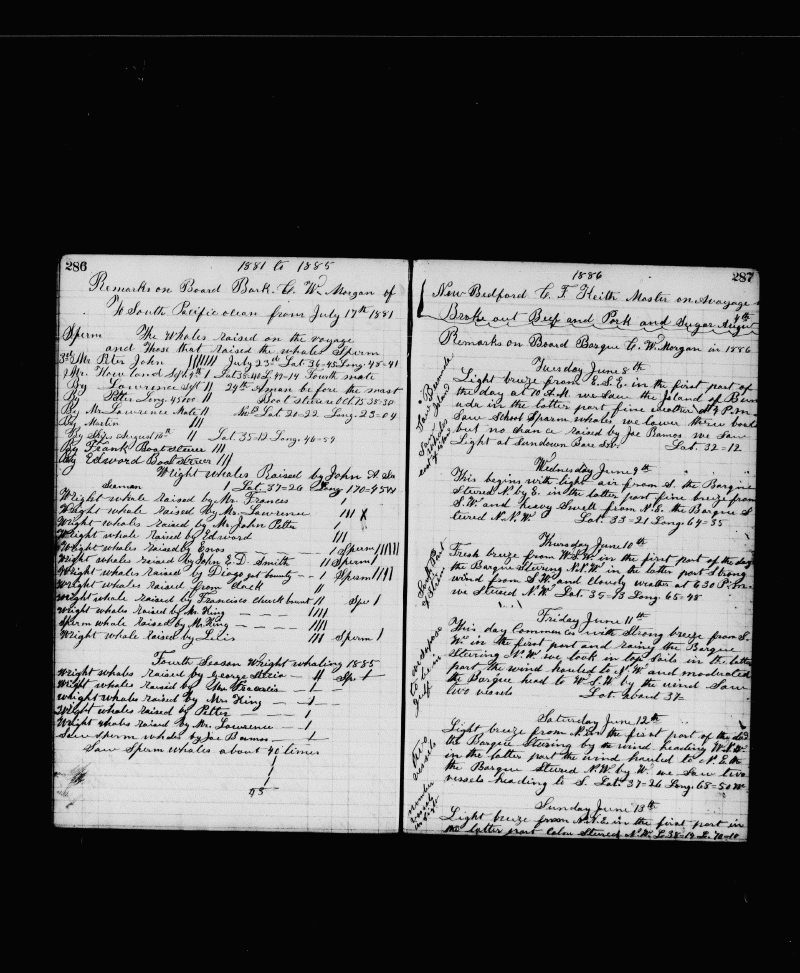 286
1881 to 1885
Remarks on Board Bark C. W. Morgan of
South Pacific ocean from July 17th 1881
Sperm The Whales raised on the voyage
and Those that raised the whales Sperm
3rd Mr Peter John July 23rd Lat 36-45 Long. 48-41
Mr. Howland Fourth mate
By Lawrence Sept 11 24th A man before the mast
By Peter Long. 45 00 11 Boat steerer Oct 15 38-30
By Mr Lawrence Mate 11 Lat 20-22 Long. 23-04
By Martin III
By August 10th 11 Lat. 35-12 Long. 46-59
By Frank Boat steerer III
By Edward Boat Steerer III
Wright Whales Raised by John A.
Seaman 1 Lat 37=26 Long 170=45
Wright whale raised by Mr. Frances 1
Wright Whale raised By Mr. Lawrence III X
Wright whales raised by Mr John Peter 1
Wright whale raised by Edward III
Wright whales raised by Enos - - - 1 Sperm IIIIII
Wright whales raised by John E. D. Smith 11 Sperm 1
Wright whales raised by Diogo got bounty - - 1 Sperm IIII
Wright whales raised from Deck 11
Wright whale raised by Francisco 11 Spe 1
Wright whales raised by Mr. King - - - IIII
Sperm whale raised by Mr. King - - - IIII
Wright whale raised by III Sperm 1
Fourth Season Wright whaling 1885
Wright whales raised by George - 11 Spe 1
Wright whales raised by Mr. - 1
Wright whales raised by Mr King - 1
Wright whales raised by Peter - 1
Wright whales raised by Mr. Lawrence - 1
Saw Sperm whales by Joe Ramos - 1
Saw Sperm whales about 40 times
1
1
1
287
1886
New Bedford C. F. Keith Master on A voyage
Broke out Beef and Pork and Sugar August 4th
Remarks on Board Barque C. W. Morgan in 1886
Tuesday June 8th
Light breeze from E. S. E. in the first part of
the day at 10 A.M. we saw the Island of Berm
uda in the latter part fine weather at 4 P.m.
Saw School Sparm whales we lower three boats
but no chance raised by Joe Ramos we Saw
Light at Sundown Bare Lat. 32=12
Saw Bermuda
Island
Wednesday June 9th
This begins with light air from S. the Barque
Stured N. by E. in the latter part fine breeze from
S. W. and heavy Swell from N. E. the Barque S
tered N. N. W. Lat. 33-21 Long. 64=35
Thursday June 10th
Fresh breeze from W.S.W. in the first part of the day
the Barque Stering N. N. W. in the latter part Strong
wind from S. W. and cloudy weater at 6 30 P. m.
we Stured N. W. Lat. 35=13 Long. 65=48
Friday June 11th
This day Commences with Strong breeze from S.
W. in the first part and rainy the Barque
Stering N. W. we took in top Sails in the latter
part the wind hauled to N. W. and moderated
the Barque head to W. S. W. by the wind Saw
two vessels Lat about 37
we supose
to be in
gulf
Saturday June 12th
Light breeze from N. W. in the first part of the day
the Barque Stering by the wind heading W. S. W.
in the latter part the wind hauled to N. E. the
the Barque Stured N.W. by W. we Saw two
vessels heading to S. Lat. 37=26 Long. 68=50 W.
two
vessels
Sunday June 13th
Light breeze from N. N. E. in the first part in
the latter part Calm Stured N. W. L. 38=14 L. 70=10
number
vessels
in sight